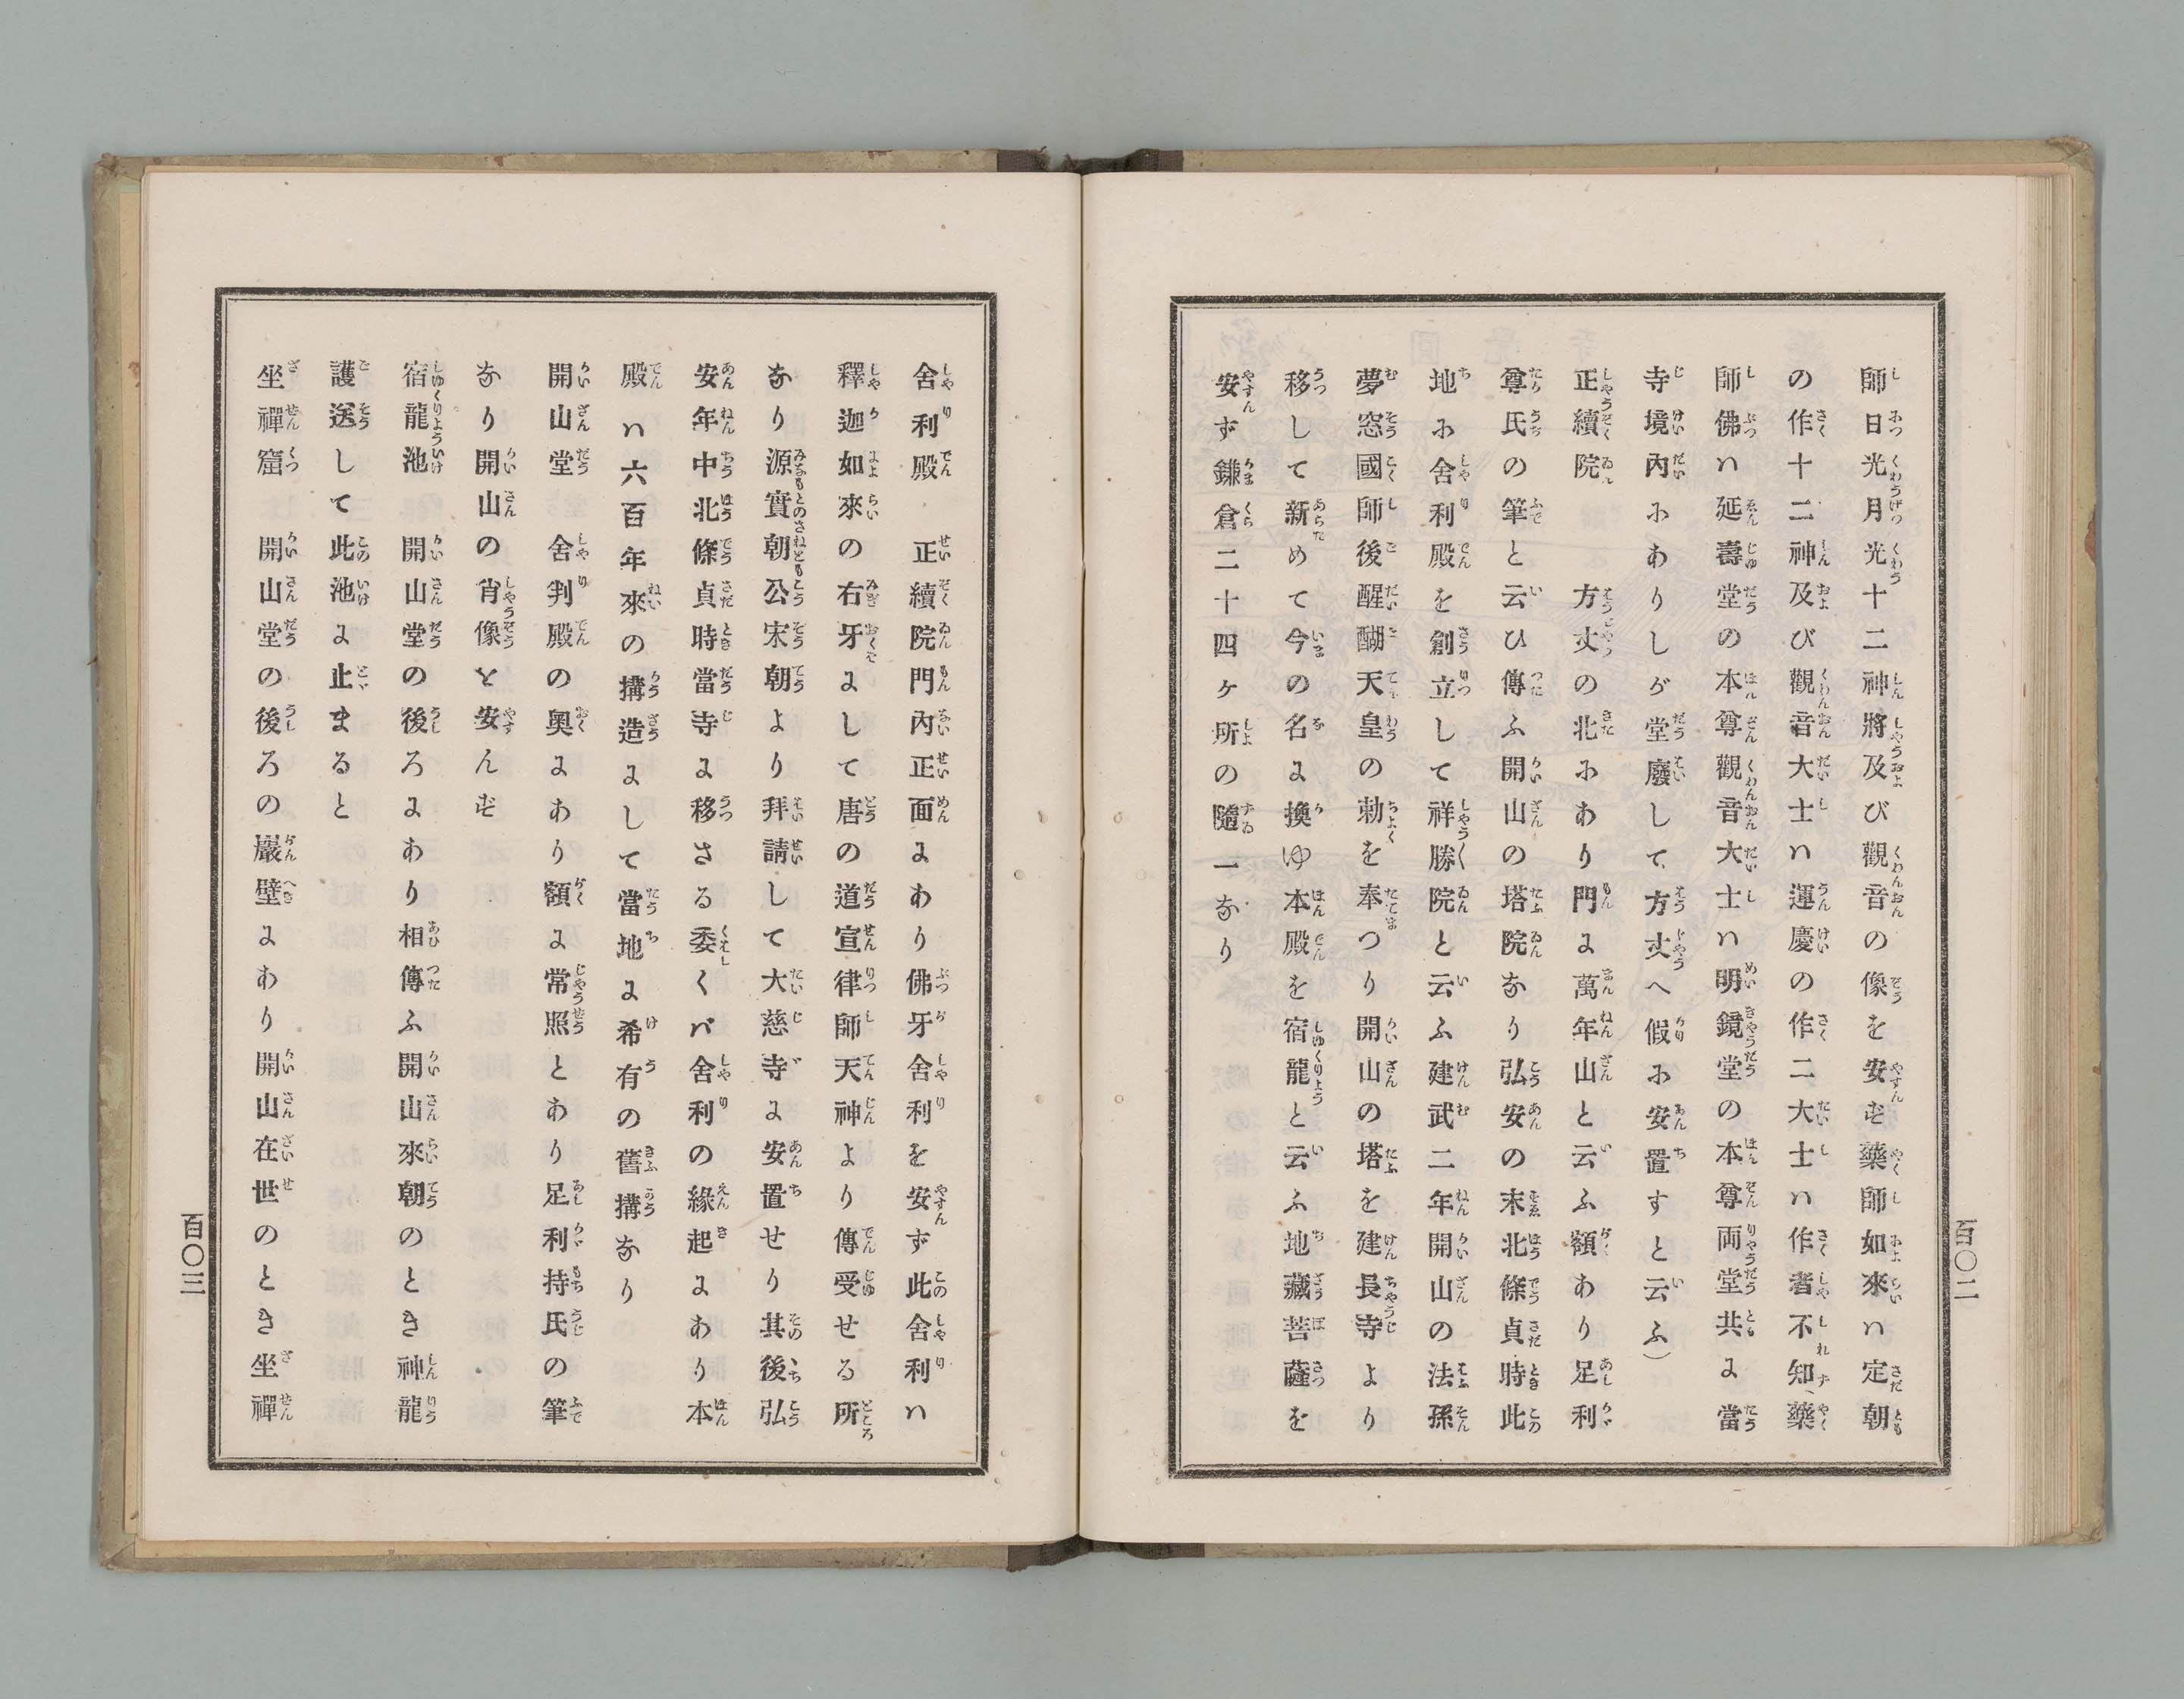 師日光月光十二神將及び觀音の像を安ず藥師如來ハ定朝
の作十二神及び觀音大士ハ運慶の作二大士ハ作者不知、藥
師佛ハ延壽堂の本尊觀音大士ハ明鏡堂の本尊両堂共に當
寺境内にありしが堂廢して方丈へ假に安置すと云ふ）
正續院　　方丈の北にあり門に萬年山と云ふ額あり足利
尊氏の筆と云ひ傳ふ開山の塔院なり弘安の末北條貞時此
地に舍利殿を創立して祥勝院と云ふ建武二年開山の法孫
夢窓國師後醍醐天皇の勅を奉つり開山の塔を建長寺より
移して新めて今の名に換ゆ本殿を宿龍と云ふ地藏菩薩を
安ず鎌倉二十四ケ所の隨一なり
百〇二
舍利殿　正續院門內正面にあり佛牙舍利を安ず此舍利ハ
釋迦如來の右牙にして唐の道宣律師天神より傳受せる所
なり源實朝公宋朝より拜請して大慈寺に安置せり其後弘
安年中北條貞時當寺に移さる委くバ舍利の緣起にあり本
殿ハ六百年來の搆造にして當地に希有の舊搆なり
開山堂　舍利殿の奧にあり額に常照とあり足利持氏の筆
なり開山の肖像を安んず
宿龍池　開山堂の後ろにあり相傳ふ開山來朝のとき神龍
護送して此池に止まると
坐禪窟　開山堂の後ろの巖壁にあり開山在世のとき坐禪
百〇三